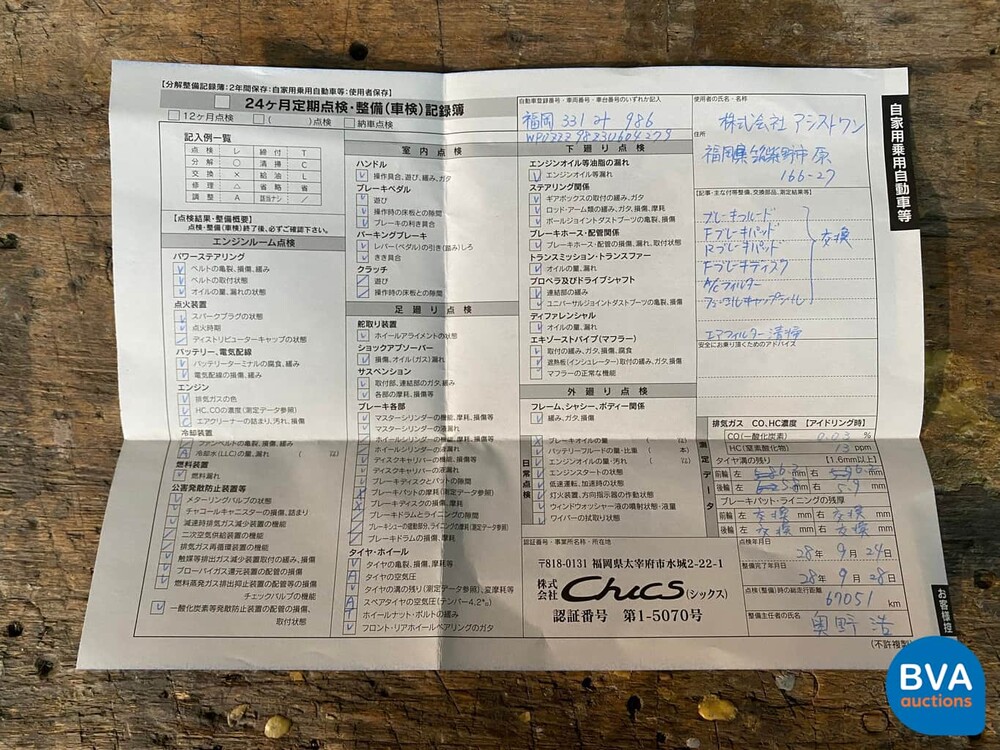 【分解整備記録簿:2年間保存:自家用乗用自動車等:使用者保存】
24ヶ月定期点検・整備(車検)記録簿
12ヶ月点検 ( )点検 納車点検
記入例一覧
点検 レ 締付 T
分解 ○ 清掃 C
交換 × 給油 L
修理 △ 省略 省
調整 A 該当ナシ /
【点検結果・整備概要】
点検・整備(車検)終了後、必ずご確認下さい。
エンジンルーム点検
パワーステアリング
ベルトの亀裂、損傷、緩み
ベルトの取付状態
オイルの量、漏れの状態
点火装置
スパークプラグの状態
点火時期
ディストリビューターキャップの状態
バッテリー、電気配線
バッテリーターミナルの腐食、緩み
電気配線の損傷、緩み
エンジン
排気ガスの色
HC、COの濃度(測定データ参照)
エアクリーナーの詰まり、汚れ、損傷
冷却装置
ファンベルトの亀裂、損傷、緩み
冷却水(LLC)の量、漏れ ( ㍑)
燃料装置
燃料漏れ
公害発散防止装置等
メターリングバルブの状態
チャコールキャニスターの損傷、詰まり
減速時排気ガス減少装置の機能
二次空気供給装置の機能
排気ガス再循環装置の機能
触媒等排出ガス減少装置取付の緩み、損傷
ブローバイガス還元装置の配管の損傷
燃料蒸発ガス排出抑止装置の配管等の損傷
チェックバルブの機能
一酸化炭素等発散防止装置の配管の損傷、
取付状態
室内点検
ハンドル
操作具合、遊び、緩み、ガタ
ブレーキペダル
遊び
操作時の床板との隙間
ブレーキの利き具合
パーキングブレーキ
レバー(ペダル)の引き(踏み)しろ
きき具合
クラッチ
遊び
操作時の床板との隙間
足廻り点検
舵取り装置
ホイールアライメントの状態
ショックアブソーバー
損傷、オイル(ガス)漏れ
サスペンション
取付部、連結部のガタ、緩み
各部の摩耗、損傷等
ブレーキ各部
マスターシリンダーの機能、摩耗、損傷等
マスターシリンダーの液漏れ
ホイールシリンダーの機能、摩耗、損傷等
ホイールシリンダーの液漏れ
ディスクキャリパーの機能、摩耗、損傷等
ディスクキャリパーの液漏れ
ブレーキディスクとパットの隙間
ブレーキパットの摩耗(測定データ参照)
ブレーキディスクの損傷、摩耗
ブレーキドラムとライニングの隙間
ブレーキシューの摺動部分、ライニングの摩耗(測定データ参照)
ブレーキドラムの摩耗、損傷
タイヤ・ホイール
タイヤの亀裂、損傷、摩耗等
タイヤの空気圧
タイヤの溝の残り(測定データ参照)、変摩耗等
スペアタイヤの空気圧(テンパー4.2㎏)
ホイールナット・ボルトの緩み
フロント・リアホイールベアリングのガタ
下廻り点検
エンジンオイル等油脂の漏れ
エンジンオイル等漏れ
ステアリング関係
ギアボックスの取付の緩み、ガタ
ロッド・アーム類の緩み、ガタ、損傷、摩耗
ボールジョイントダストブーツの亀裂、損傷
ブレーキホース・配管関係
ブレーキホース・配管の損傷、漏れ、取付状態
トランスミッション・トランスファー
オイルの量、漏れ
プロペラ及びドライブシャフト
連結部の緩み
ユニバーサルジョイントダストブーツの亀裂、損傷
ディファレンシャル
オイルの量、漏れ
エキゾーストパイプ(マフラー)
取付の緩み、ガタ、損傷、腐食
遮熱板(インシュレーター)取付の緩み、ガタ、損傷
マフラーの正常な機能
外廻り点検
フレーム、シャシー、ボディー関係
緩み、ガタ、損傷
日常点検
ブレーキオイルの量 ( ㍑)
バッテリーフルードの量・比重 ( )
エンジンオイルの量・汚れ ( ㍑)
エンジンスタートの状態
低速運転、加速時の状態
灯火装置、方向指示器の作動状態
ウィンドウッシャー液の噴射状態・液量
ワイパーの拭取り状態
自動車登録番号・車両番号・車台番号のいずれか記入
福岡 331 さ 986
使用者の氏名・名称
株式会社 アシストワン
住所
福岡県筑紫野市原
166-27
【記事・主な付帯整備、交換部品、測定結果等】
ブレーキフルード
Fブレーキパッド
Rブレーキパッド
交換
Fブレーキディスク
A/Cフィルター
エアフィルター 清掃
安全にお乗り頂くためのアドバイス
測定データ
排気ガス CO、HC濃度 【アイドリング時】
CO(一酸化炭素) 0.03 %
HC(窒素酸化物) 13 ppm
タイヤ溝の残り 【1.6mm以上】
前輪 左 mm 右 mm
後輪 左 mm 右 5.9 mm
ブレーキパット・ライニングの残厚
前輪 左 交換 mm 右 交換 mm
後輪 左 交換 mm 右 交換 mm
点検年月日
28年 9月 24日
整備完了年月日
28年 9月 28日
点検(整備)時の総走行距離
69051 km
整備主任者の氏名
奥野 浩
(不許複製)
認証番号・事業所名称・所在地
〒818-0131 福岡県太宰府市水城2-22-1
株式会社 Chics(シックス)
認証番号 第1-5070号
自家用乗用自動車等
お客様控
BVA
auctions